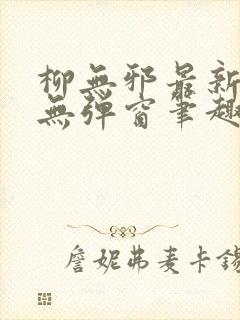 柳無邪最新
無彈窗筆趣
詹妮弗麦卡錫